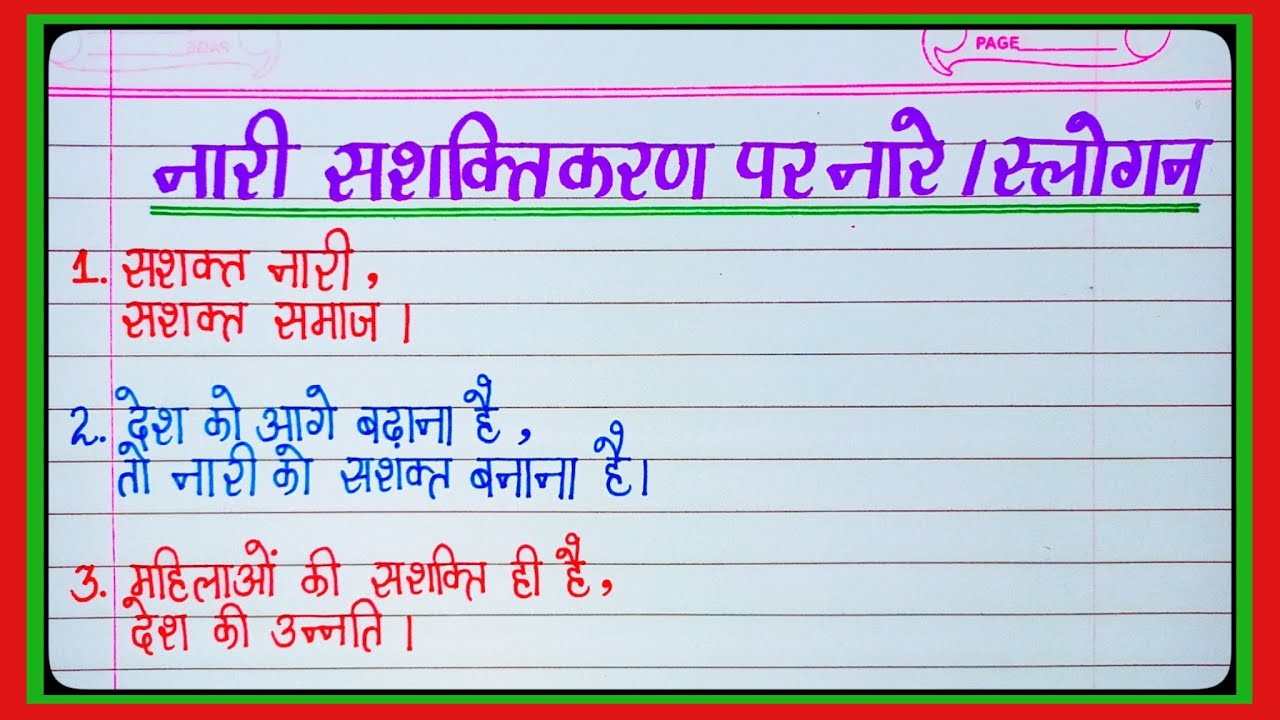 PAGE
नारी सशक्तिकरण पर नारे / स्लोगन
1. सशक्त नारी,
सशक्त समाज।
2. देश को आगे बढ़ाना है,
तो नारी को सशक्त बनाना है।
3. महिलाओं की सशक्ति ही है,
देश की उन्नति।